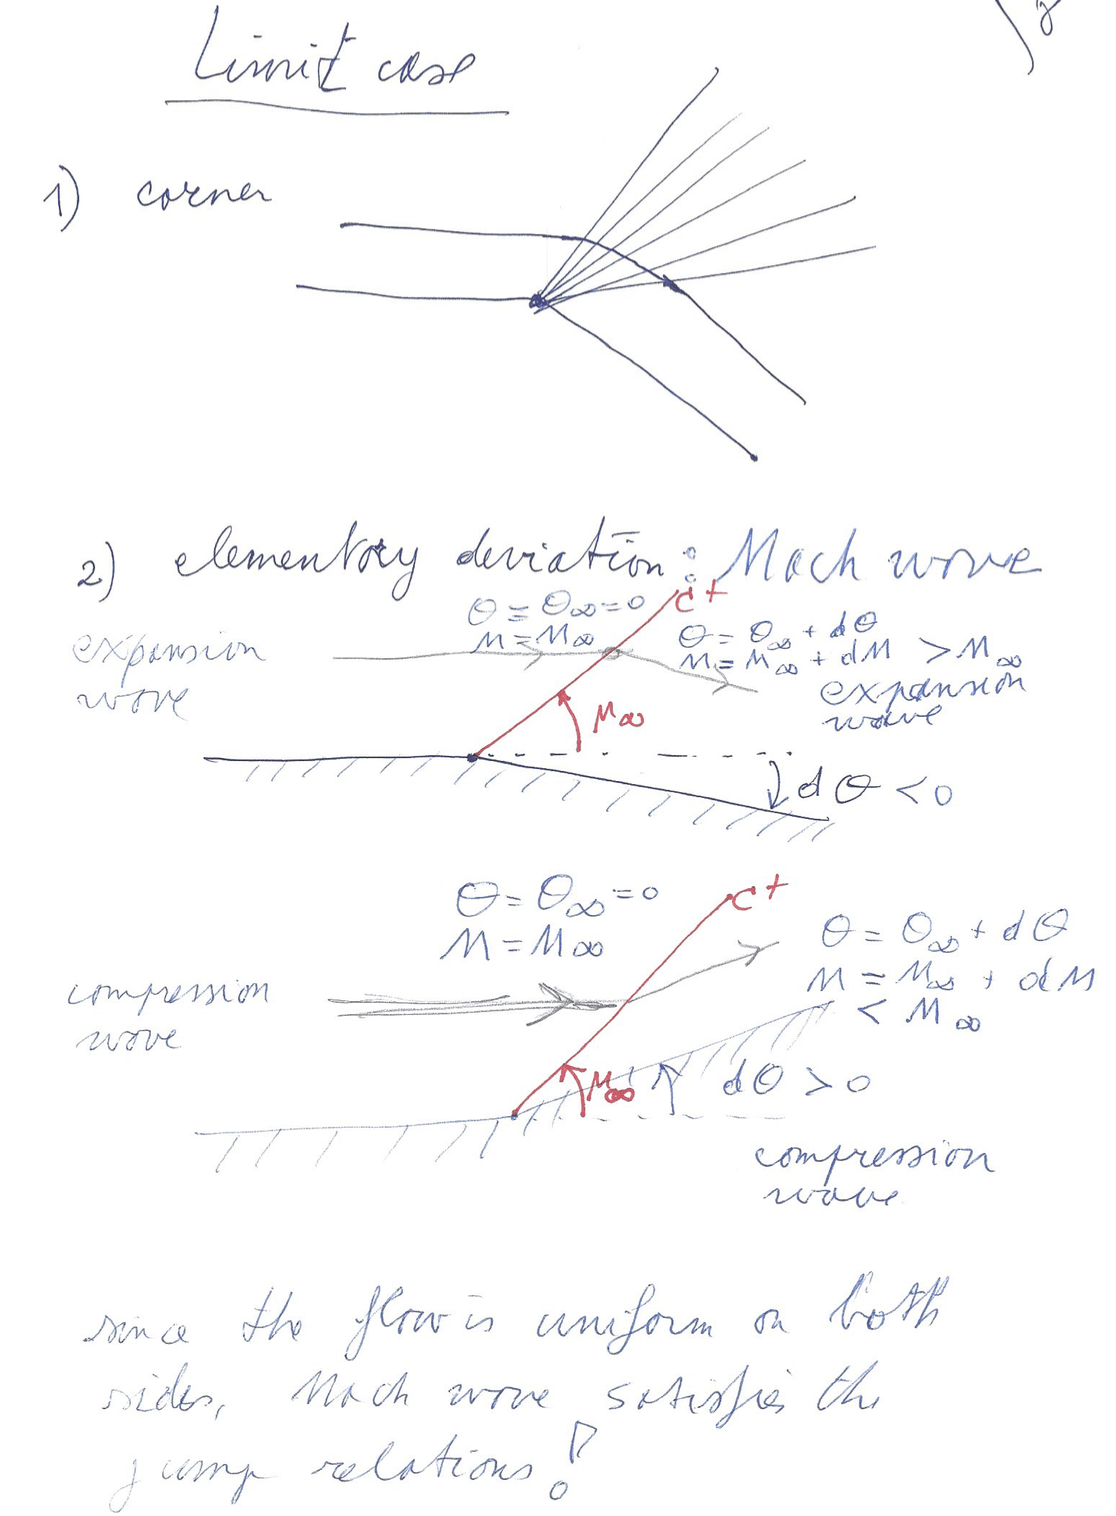 Limit case
1) corner
2) elementary deviation : Mach wave
C+
θ = θ∞ = 0
M = M∞
θ = θ∞ + dθ
M = M∞ + dM > M∞
expansion
wave
expansion
wave
μ∞
dθ < 0
θ = θ∞ = 0
M = M∞
C+
θ = θ∞ + dθ
M = M∞ + dM
< M∞
compression
wave
μ∞
dθ > 0
compression
wave
since the flow is uniform on both
sides, Mach wave satisfies the
jump relations!